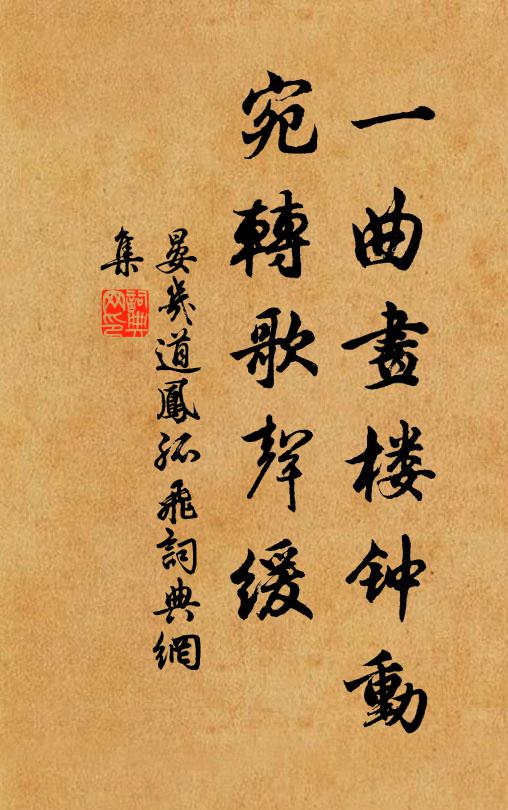 一曲畫楼钟動
宛轉歌聲緩
晏幾道鳳孤飛詞典網
集
詞典网印